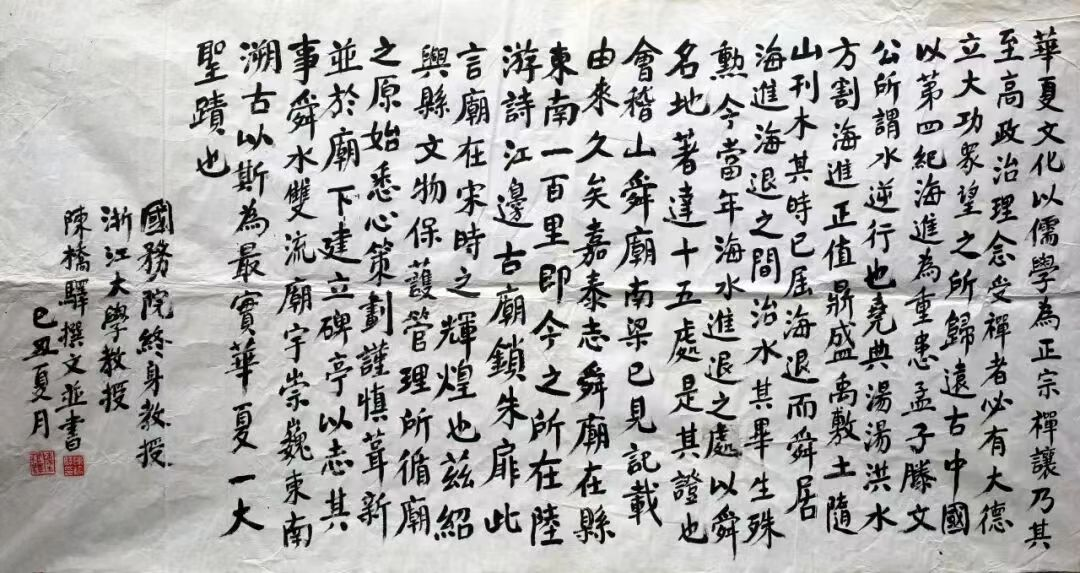 華夏文化以儒學為正宗禪讓乃其
至高政治理念受禪者必有大德
立大功眾望之所歸遠古中國
以第四紀海進為重患孟子滕文
公所謂水逆行也堯典湯湯洪水
方割海進正值鼎盛禹敷土隨
山刊木其時已屆海退而舜居
海進海退之間治水其畢生殊
勳今當年海水進退之處以舜
名地著達十五處是其證也
會稽山舜廟南梁已見記載
由來久矣嘉泰志舜廟在縣
東南一百里即今之所在陸
游詩江邊古廟鎖朱扉此
言廟在宋時之輝煌也茲紹
興縣文物保護管理所循廟
之原始悉心策劃謹慎葺新
並於廟下建立碑亭以志其
事舜水雙流廟宇崇巍東南
溯古以斯為最實華夏一大
聖蹟也
國務院終身教授
浙江大學教授
陳橋驛撰文並書
己丑夏月